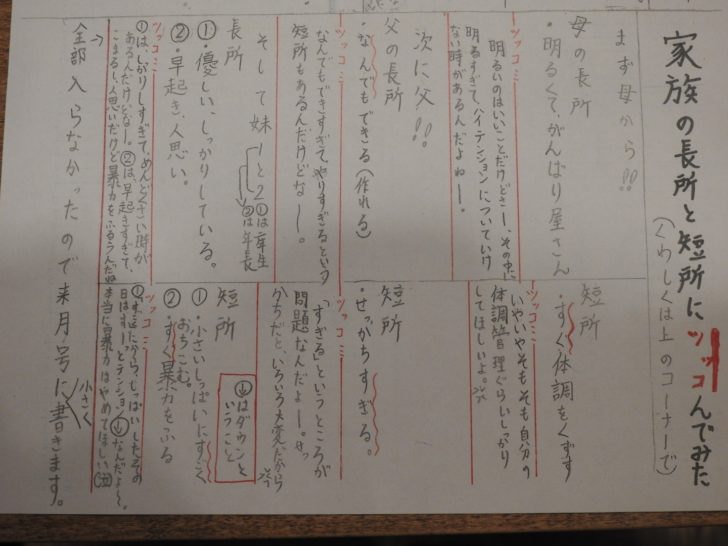 家族の長所と短所にツッコんでみた
(くわしくは上のコーナーで)
まず母から!!
母の長所
・明るくて、がんばり屋さん
ツッコミ
明るいのはいいことだけどさー、その中に
明るすぎて、ハイテンションについていけ
ない時があるんだよねー。
短所
・すぐ体調をくずす
ツッコミ
いやいやそもそも自分の
体調管理ぐらいしっかり
してほしいよ。
次に父!!
父の長所
・なんでもできる(作れる)
ツッコミ
なんでもできすぎて、やりすぎるという
短所もあるんだけどなー。
短所
・せっかちすぎる。
ツッコミ
「すぎる」というところが
問題なんだよー。せっ
かちだと、いろいろ大変だから
そして妹1と2
①は一年生
②は年長
長所
①・優しい、しっかりしている。
②・早起き、人思い。
ツッコミ
①は、しっかりしすぎて、めんどくさい時が
あるんだけどなー。②は早起きすぎて、
こまるし、人思いだけど暴力をふるうんだよ
短所
①・小さいしっぱいにすごく
おちこむ。
②・すぐ暴力をふる
↓はダウンと
いうこと
ツッコミ
しっぱいしたその
日はずーっとテンション↓なんだよー。
本当に暴力はやめてほしい
→
全部入らなかったので来月号に小さく書きます。